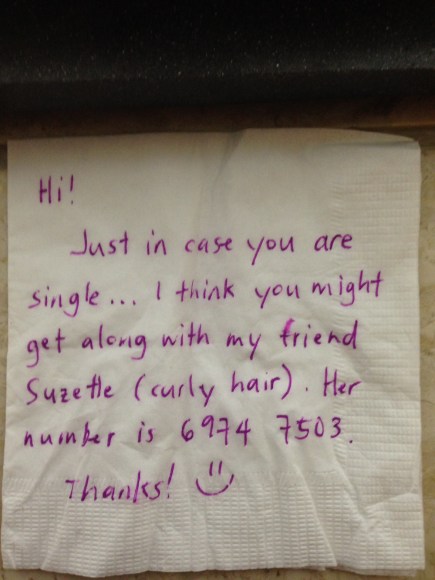 Hi!
Just in case you are
single... I think you might
get along with my friend
Suzette (curly hair). Her
number is 6974 7503.
Thanks! :)